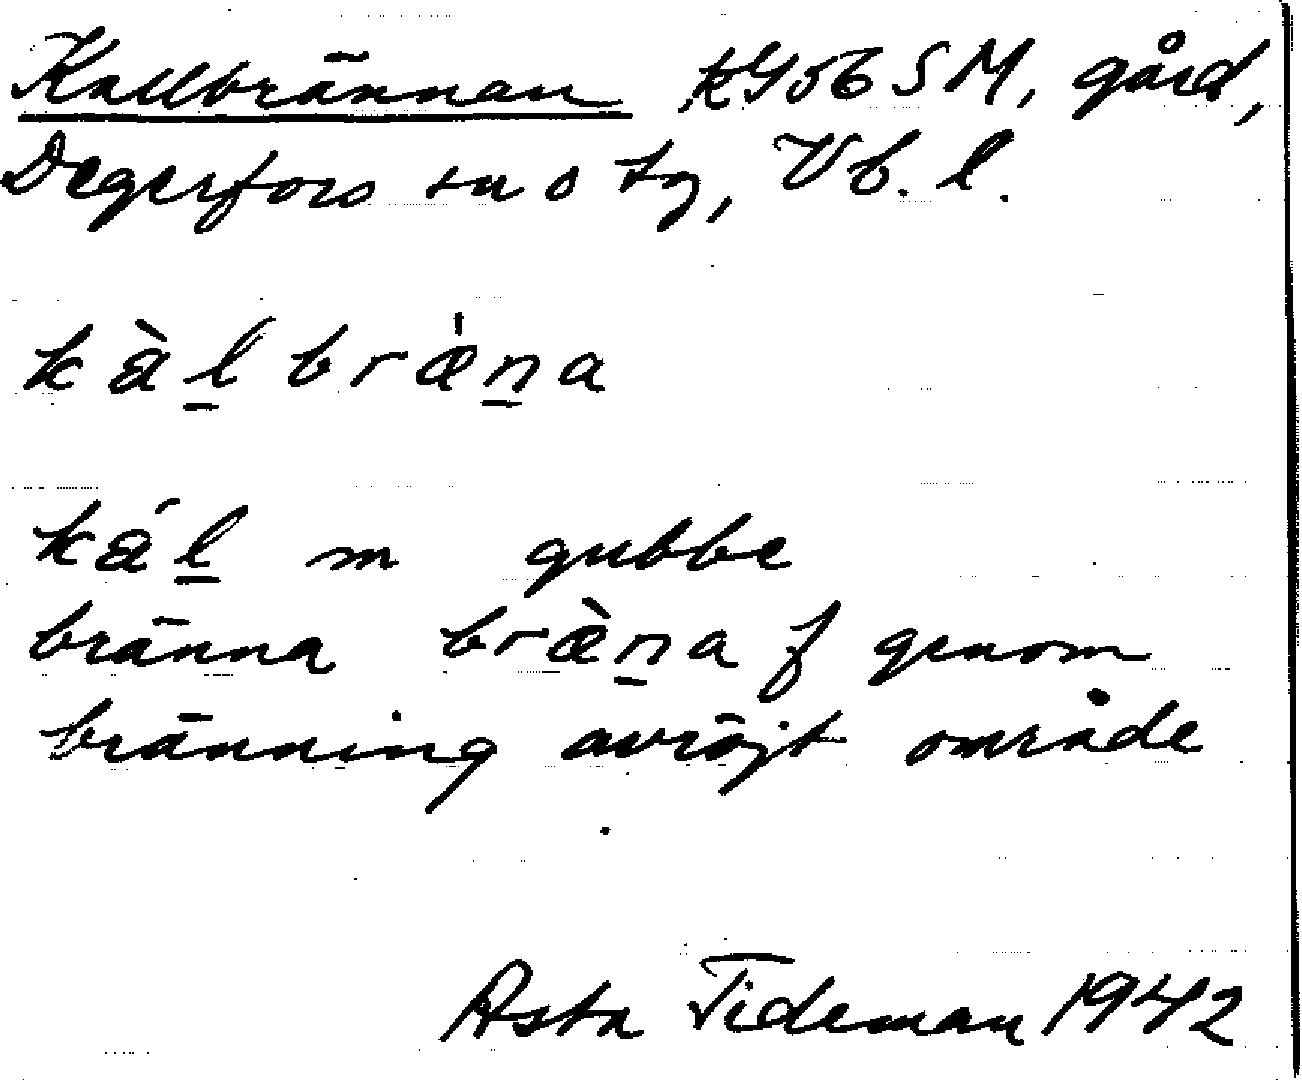 Kallbrännan kY56 SM, gård,
Degerfors sn o tg, Vb. l.
kàl̲ bræ̍n̲a
kál̲ m gubbe
bränna bræ̀n̲a f genom
bränning avröjt område
Asta Tideman 1942